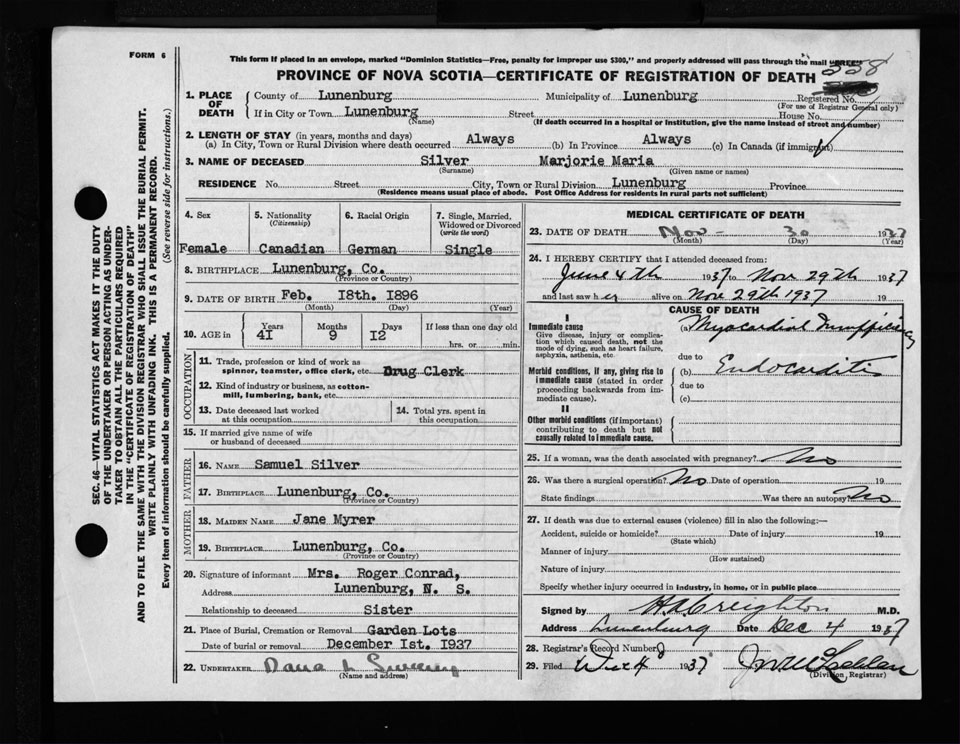 FORM 6
This form if placed in an envelope, marked "Dominion Statistics—Free, penalty for improper use $300," and properly addressed will pass through the mail "FREE"
PROVINCE OF NOVA SCOTIA—CERTIFICATE OF REGISTRATION OF DEATH
558
Registered No.
(For use of Registrar General only)
1. PLACE OF DEATH
County of Lunenburg Municipality of Lunenburg
If in City or Town Lunenburg Street House No.
(Name) (If death occurred in a hospital or institution, give the name instead of street and number)
2. LENGTH OF STAY (in years, months and days)
(a) In City, Town or Rural Division where death occurred Always (b) In Province Always (c) In Canada (if immigrant)
3. NAME OF DECEASED Silver Marjorie Maria
(Surname) (Given name or names)
RESIDENCE No. Street City, Town or Rural Division Lunenburg Province
(Residence means usual place of abode. Post Office Address for residents in rural parts not sufficient)
SEC. 46—VITAL STATISTICS ACT MAKES IT THE DUTY
OF THE UNDERTAKER OR PERSON ACTING AS UNDER-
TAKER TO OBTAIN ALL THE PARTICULARS REQUIRED
IN THE "CERTIFICATE OF REGISTRATION OF DEATH"
AND TO FILE THE SAME WITH THE DIVISION REGISTRAR WHO SHALL ISSUE THE BURIAL PERMIT.
WRITE PLAINLY WITH UNFADING INK. THIS IS A PERMANENT RECORD.
Every item of information should be carefully supplied. (See reverse side for instructions.)
4. Sex 5. Nationality 6. Racial Origin 7. Single, Married,
(Citizenship) Widowed or Divorced
(write the word)
Female Canadian German Single
8. BIRTHPLACE Lunenburg, Co.
(Province or Country)
9. DATE OF BIRTH Feb. 18th. 1896
(Month) (Day) (Year)
10. AGE in Years Months Days If less than one day old
41 9 12 hrs. or min.
OCCUPATION
11. Trade, profession or kind of work as
spinner, teamster, office clerk, etc. Drug Clerk
12. Kind of industry or business, as cotton-
mill, lumbering, bank, etc.
13. Date deceased last worked at this occupation
14. Total yrs. spent in this occupation
15. If married give name of wife
or husband of deceased
FATHER
16. NAME Samuel Silver
17. BIRTHPLACE Lunenburg, Co.
(Province or Country)
MOTHER
18. MAIDEN NAME Jane Myrer
19. BIRTHPLACE Lunenburg, Co.
(Province or Country)
20. Signature of informant Mrs. Roger Conrad,
Address Lunenburg, N. S.
Relationship to deceased Sister
21. Place of Burial, Cremation or Removal Garden Lots
Date of burial or removal December 1st. 1937
22. UNDERTAKER Dana L Sweeny
(Name and address)
MEDICAL CERTIFICATE OF DEATH
23. DATE OF DEATH Nov- 30 1937
(Month) (Day) (Year)
24. I HEREBY CERTIFY that I attended deceased from:
June 4th 1937 to Nov 29th 1937
and last saw her alive on Nov 29th 1937 19
CAUSE OF DEATH
I
Immediate cause
Give disease, injury or complica-
tion which caused death, not the
mode of dying, such as heart failure,
asphyxia, asthenia, etc.
(a) Myocardial Insufficiency
due to
Morbid conditions, if any, giving rise to
immediate cause (stated in order
proceeding backwards from im-
mediate cause).
(b) Endocarditis
due to
(c)
II
Other morbid conditions (if important)
contributing to death but not
causally related to immediate cause.
25. If a woman, was the death associated with pregnancy? No
26. Was there a surgical operation? No Date of operation 19
State findings Was there an autopsy? No
27. If death was due to external causes (violence) fill in also the following:—
Accident, suicide or homicide? Date of injury 19
(State which)
Manner of injury
(How sustained)
Nature of injury
Specify whether injury occurred in industry, in home, or in public place
Signed by H.A. Creighton M.D.
Address Lunenburg Date Dec 4 1937
28. Registrar's Record Number
29. Filed 4 1937
(Division Registrar)